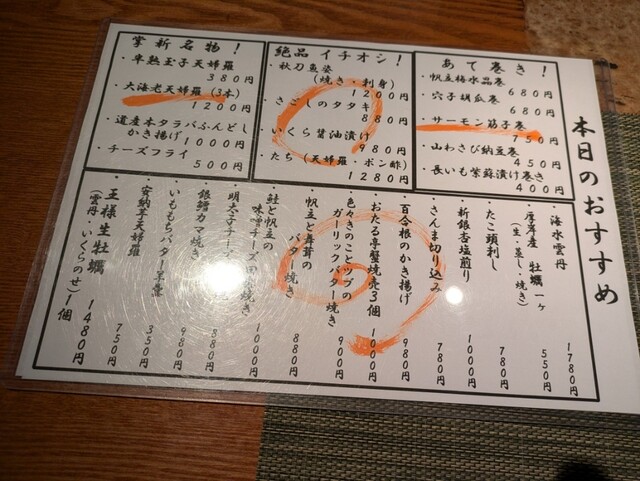 本日のおすすめ
掌新名物！
・半熟玉子天婦羅
380円
・大海老天婦羅(3本)
1200円
・道産本タラバふんどし
かき揚げ 1000円
・チーズフライ
500円
絶品イチオシ！
・秋刀魚姿
(焼き・刺身)
1200円
・さごしのタタキ
880円
・いくら醤油漬け
980円
・たち(天婦羅・ポン酢)
1280円
あて巻き！
・帆立梅水晶巻
680円
・穴子胡瓜巻
680円
・サーモン筋子巻
750円
・山わさび納豆巻
450円
・長いも紫蘇漬け巻き
400円
・海水雲丹 1780円
・厚岸産 牡蠣一ヶ
(生・蒸し・焼き) 550円
・たこ頭刺し 780円
・新銀杏塩煎り 1000円
・さんま切り込み 780円
・百合根のかき揚げ 980円
・おたる亭蟹焼売3個 1000円
・色々きのことツブの
ガーリックバター焼き 900円
・帆立と舞茸の
バター焼き 880円
・鮭と帆立の
味噌チーズ焼き 1000円
・明太子チーズ
880円
・銀鱈カマ焼き 980円
・いももちバター
350円
・安納芋天婦羅 750円
・王様生牡蠣
(雲丹・いくらのせ)1個 1480円